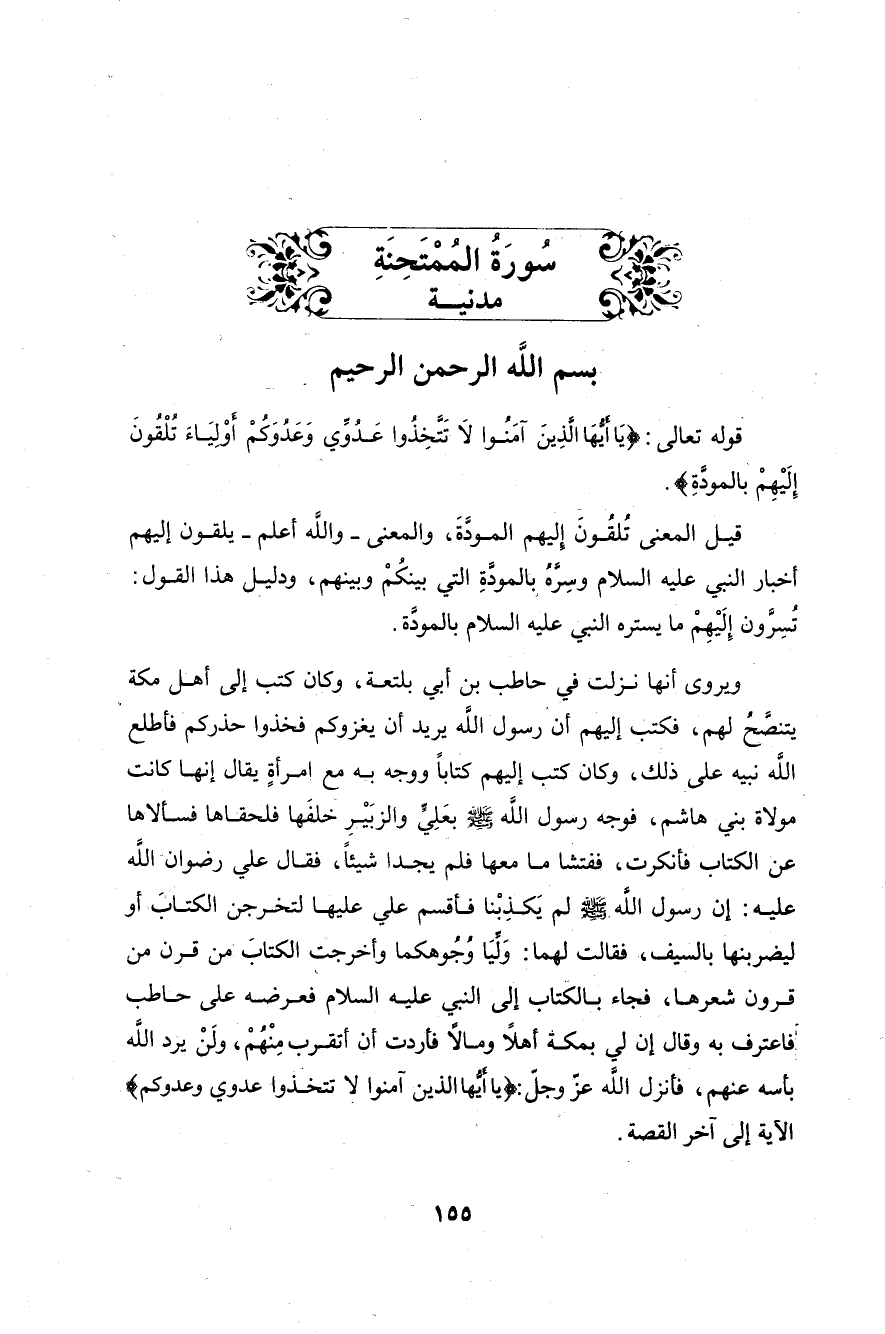 سُورَةُ المُمْتَحِنَةِ
مدنيـــة
بسم اللَّه الرحمن الرحيم
قوله تعالى: ﴿يَا أَيُّهَا الَّذِينَ آمَنُـوا لَا تَتَّخِذُوا عَـدُوِّي وَعَدُوَكُمْ أَوْلِيَـاءَ تُلْقُونَ
إِلَيْهِمْ بالمودَّةِ﴾.
قيـل المعنى تُلقُـونَ إِليهم المـودَّةَ، والمعنى ـ واللَّه أعلم ـ يلقـون إليهم
أخبار النبي عليه السلام وسِرَّهُ بالمودَّةِ التي بينكُمْ وبينهم، ودليـل هذا القـول:
تُسِرَّون إِلَيْهِمْ ما يستره النبي عليه السلام بالمودَّة.
ويروى أنها نـزلت في حاطب بن أبي بلتعـة، وكان كتب إلى أهـل مكة
يتنصَّحُ لهم، فكتب إليهم أن رسول اللَّه يريد أن يغزوكم فخذوا حذركم فأطلع
اللَّه نبيه على ذلك، وكان كتب إليهم كتاباً ووجه بـه مع امـرأةٍ يقال إنهـا كانت
مولاة بني هاشم، فوجه رسول اللَّه ﷺ بعَلِيٍّ والزبَيْـرِ خلفَها فلحقـاها فسـألاها
عن الكتاب فأنكرت، ففتشا مـا معها فلم يجـدا شيئاً، فقـال علي رضوان اللَّه
عليـه: إن رسول اللَّه ﷺ لم يَكـذِبْنا فـأقسم علي عليهـا لتخـرجن الكتـابَ أو
ليضربنها بالسيف، فقالت لهما: وَلِّيَا وُجُوهكما وأخرجت الكتابَ من قـرن من
قـرون شعرهـا، فجاء بـالكتاب إلى النبي عليـه السلام فعـرضـه على حـاطب
فاعترف به وقال إن لي بمكـة أهلاً ومـالاً فأردت أن أتقـرب مِنْهُمْ، ولَنْ يرد اللَّه
بأسه عنهم، فأنزل اللَّه عزّ وجلّ: ﴿يا أَيُّها الذين آمنوا لا تتخـذوا عدوي وعدوكم﴾
الآية إلى آخر القصة.
١٥٥